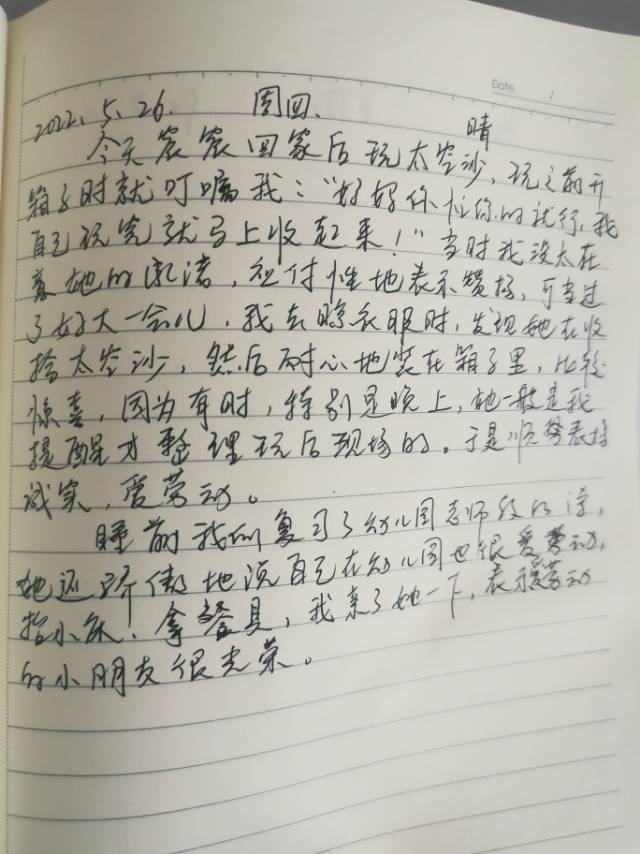 Date
2022.5.26. 周四. 晴
今天宸宸回家后玩太空沙,玩之前开
箱子时就叮嘱我:“好好你忙你的就行,我
自己玩完就马上收起来!”当时我没太在
意她的承诺,应付性地表示赞扬,可当过
了好大一会儿,我去晾衣服时,发现她在收
拾太空沙,然后耐心地装在箱子里,比较
惊喜,因为有时,特别是晚上,她一般是我
提醒才整理玩后现场的。于是顺势表扬
诚实,爱劳动。
睡前我们复习了幼儿园老师教的诗,
她还骄傲地说自己在幼儿园也很爱劳动,
抬小床,拿餐具,我亲了她一下,表示爱劳动
的小朋友很光荣。